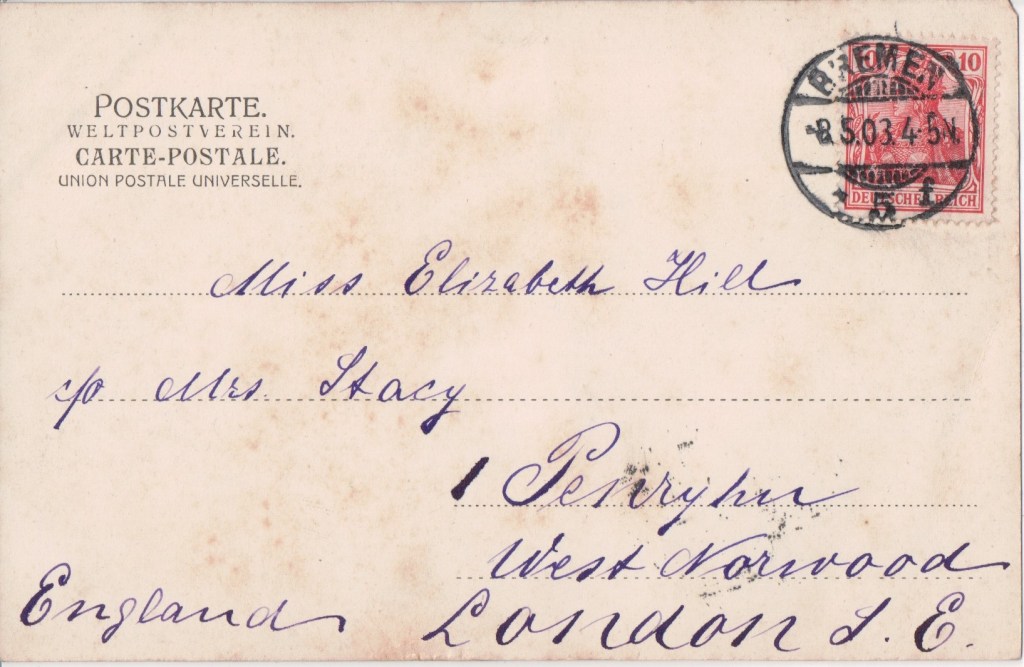 POSTKARTE.
WELTPOSTVEREIN.
CARTE-POSTALE.
UNION POSTALE UNIVERSELLE.
10
DEUTSCHES REICH
BREMEN
8.5.03.4-5N
5 f
Miss Elizabeth Hill
c/o Mrs Stacy
1 Penryhn
West Norwood
London S. E.
England